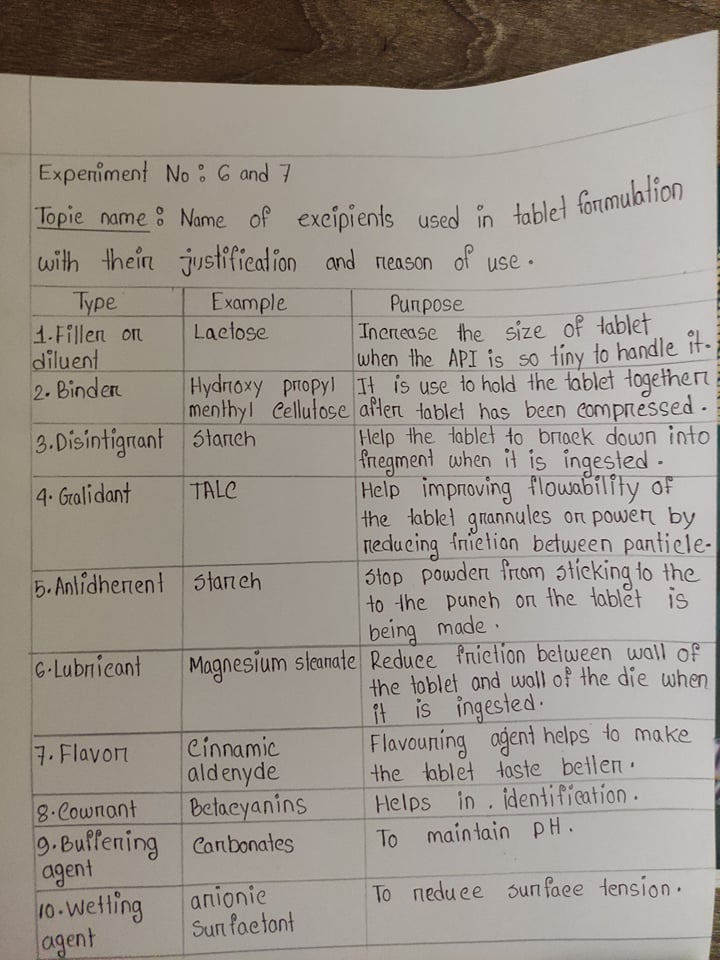 Experiment No : 6 and 7
Topic name : Name of excipients used in tablet formulation
with their justification and reason of use.
Type Example Purpose
1. Filler or
diluent
Lactose
Increase the size of tablet
when the API is so tiny to handle it.
2. Binder
Hydroxy propyl
menthyl cellutose
It is use to hold the tablet together
after tablet has been compressed.
3. Disintigrant
Starch
Help the tablet to brack down into
fregment when it is ingested.
4. Galidant
TALC
Help improving flowability of
the tablet grannules or power by
reducing friction between particle.
5. Antidherent
Starch
Stop powder from sticking to the
to the punch or the tablet is
being made.
6. Lubricant
Magnesium stearate
Reduce friction between wall of
the tablet and wall of the die when
it is ingested.
7. Flavor
Cinnamic
aldenyde
Flavouring agent helps to make
the tablet taste better.
8. Cowrant
Betacyanins
Helps in . identification.
9. Buffering
agent
Carbonates
To maintain pH.
10. Wetting
agent
anionic
Surfactant
To reduce surface tension.